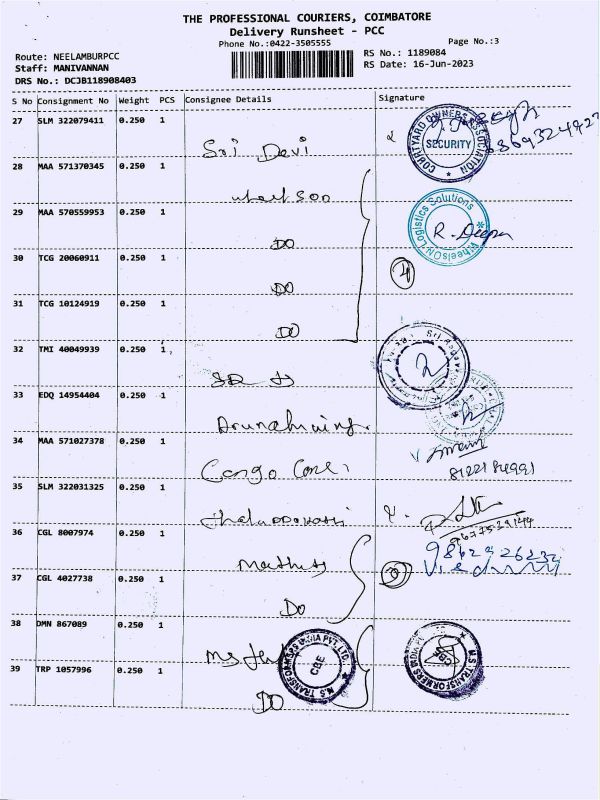 THE PROFESSIONAL COURIERS, COIMBATORE
Delivery Runsheet - PCC
Phone No.:0422-3505555
Page No.:3
Route: NEELAMBURPCC
RS No.: 1189084
Staff: MANIVANNAN
RS Date: 16-Jun-2023
DRS No.: DCJB118908403
S No Consignment No Weight PCS Consignee Details Signature
27 SLM 322079411 0.250 1
Sri Devi
COURTYARD OWNERS ASSOCIATION
SECURITY
28 MAA 571370345 0.250 1
29 MAA 570559953 0.250 1
DO
WheelsOn Logistics Solutions
R. Deepa
30 TCG 20060911 0.250 1
DO
4
31 TCG 10124919 0.250 1
DO
32 TMI 40049939 0.250 1
33 EDQ 14954404 0.250 1
34 MAA 571027378 0.250 1
Cargo Care
35 SLM 322031325 0.250 1
36 CGL 8007974 0.250 1
37 CGL 4027738 0.250 1
DO
38 DMN 867089 0.250 1
M.S. TRANSFORMERS INDIA PVT. LTD.
CBE
M.S. TRANSFORMERS INDIA PVT. LTD.
CBE
39 TRP 1057996 0.250 1
DO